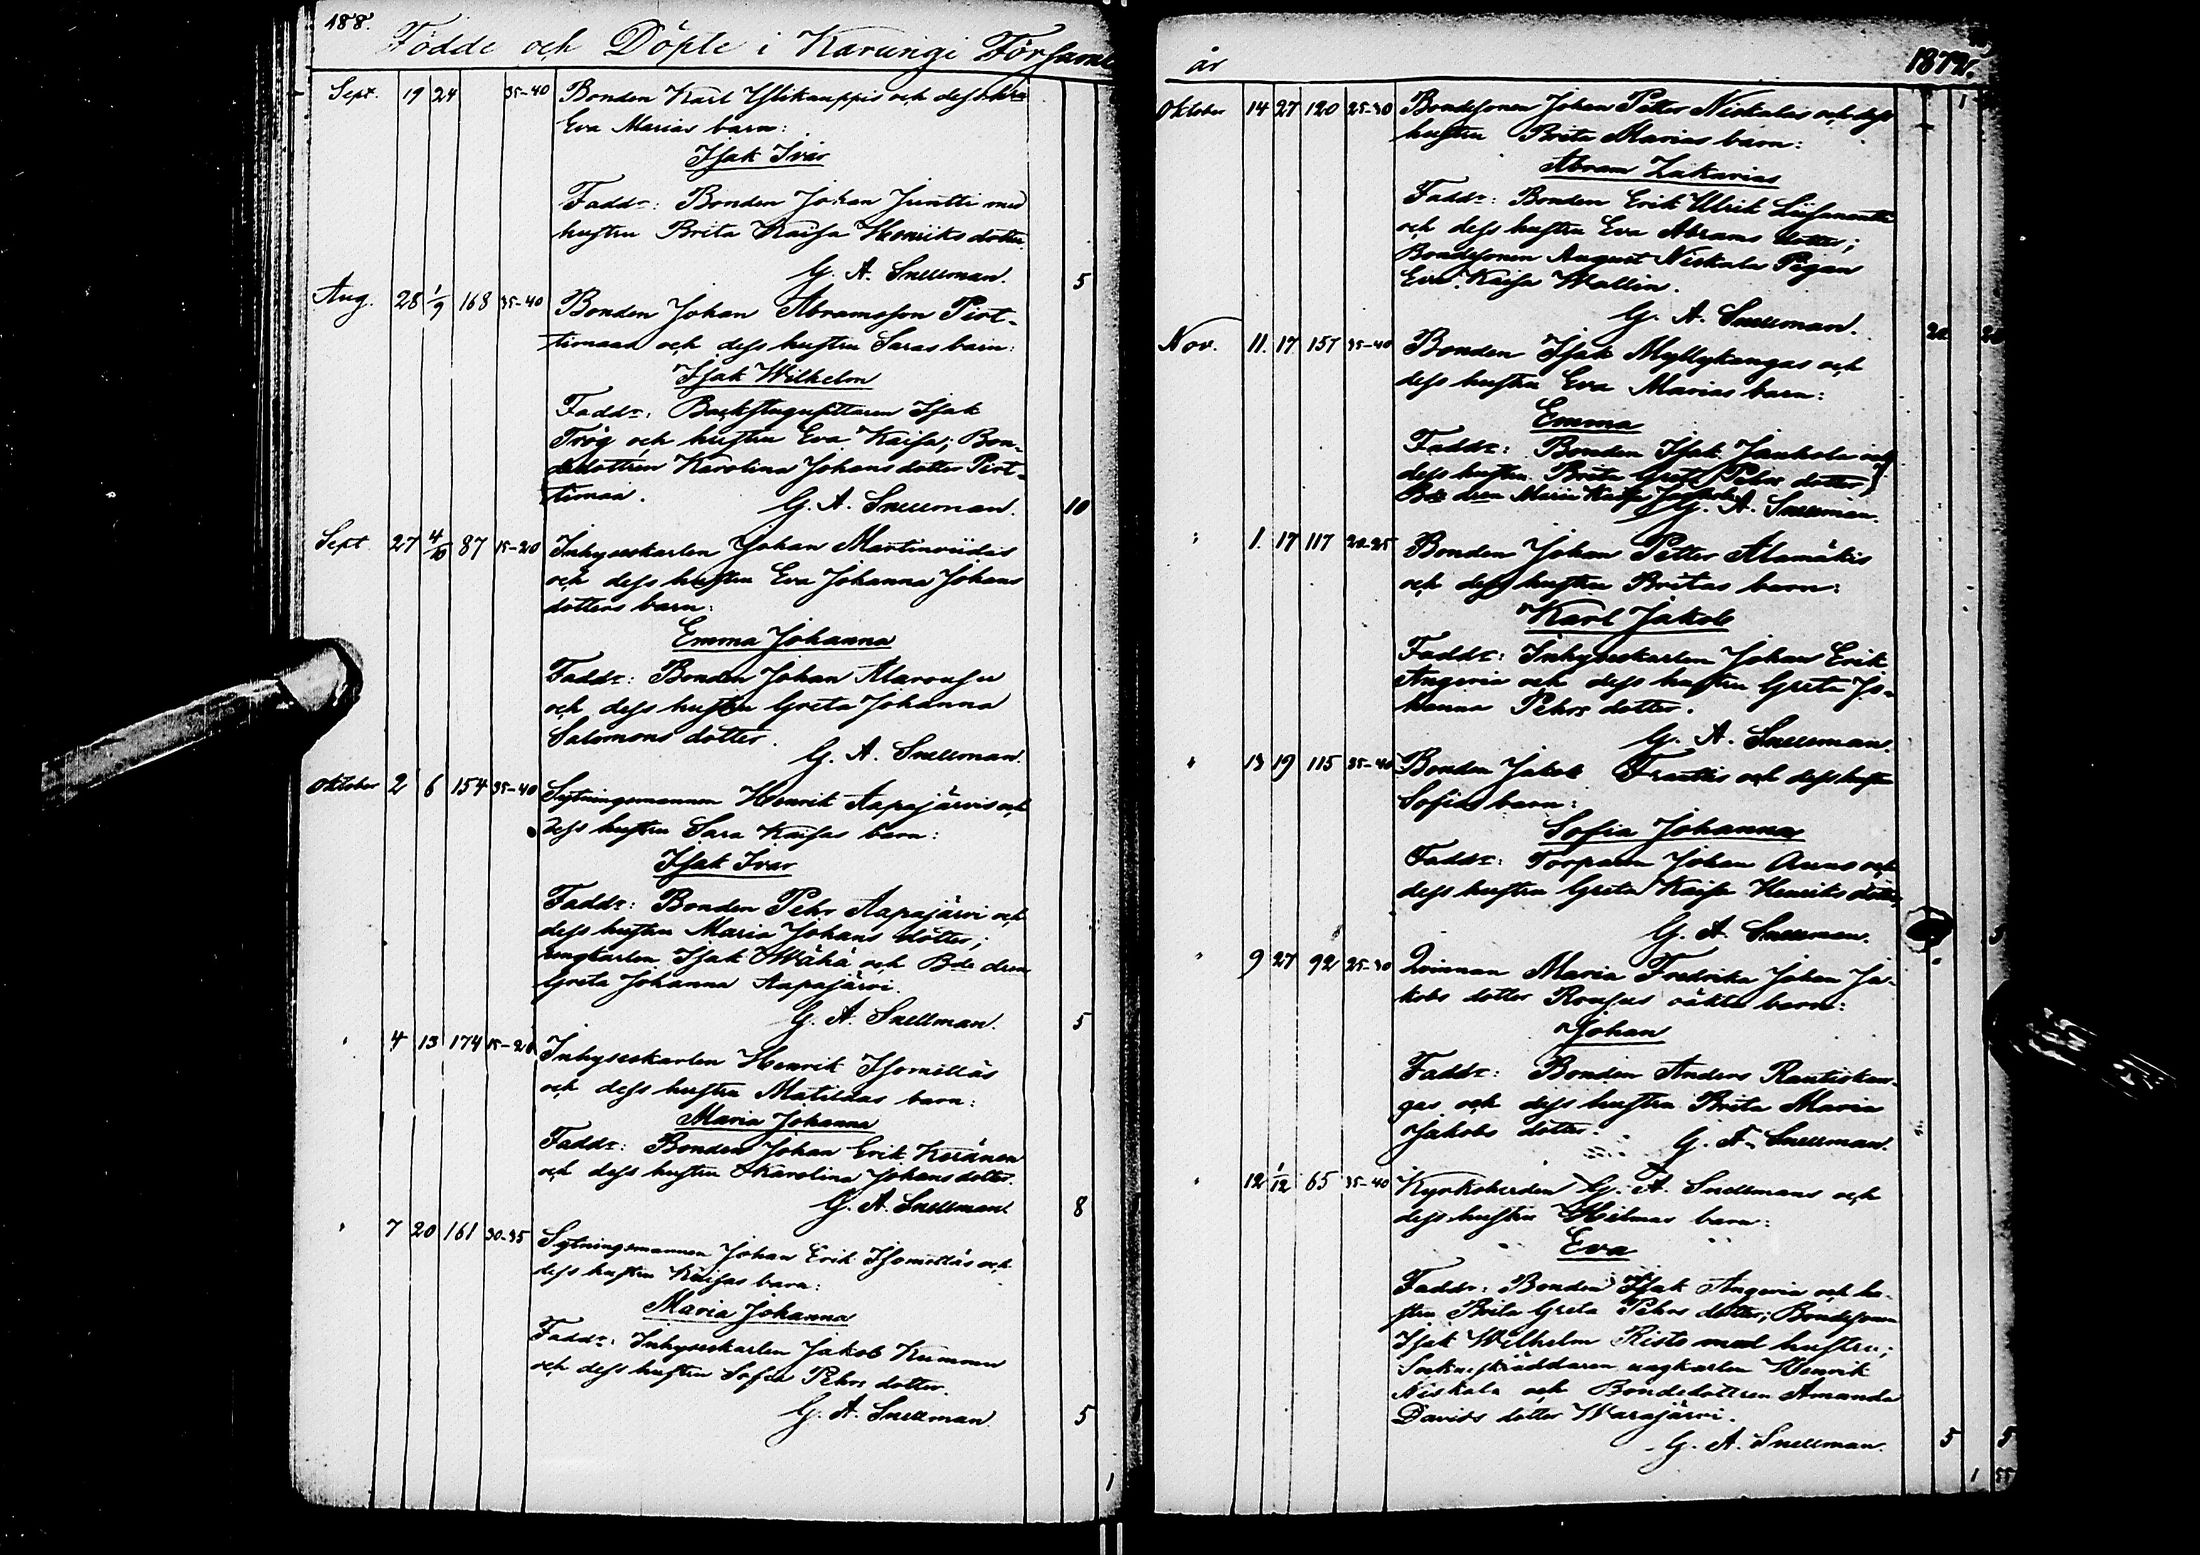 188.
Födde och Döpte i Karungi Församl
Sept. 19 24 35-40 Bonden Karl Ylikauppis och dess hu
Eva Marias barn:
Isak Ivar
Fadd:r: Bonden Johan Juntti med
hustru Brita Kaisa Henriks dotter
G. A. Snellman. 5
Aug. 28 1/9 168 35-40 Bonden Johan Abramsson Pirt-
timaas och dess hustru Saras barn:
Isak Wilhelm
Fadd:r: Backstugusittaren Isak
Trög och hustru Eva Kaisa; Bon-
dedottren Karolina Johans dotter Pirt-
timaa. G. A. Snellman. 10
Sept. 27 4/10 87 15-20 Inhyseskarlen Johan Martinviidas
och dess hustru Eva Johanna Johans
dotters barn:
Emma Johanna
Fadd:r: Bonden Johan Alarousu
och dess hustru Greta Johanna
Salomons dotter.
G. A. Snellman.
Oktober 2 6 154 35-40 Sytningsmannen Henrik Aapajärvis och
dess hustru Sara Kaisas barn:
Isak Ivar
Fadd:r: Bonden Pehr Aapajärvi och
dess hustru Maria Johans dotter;
ungkarlen Isak Wähä och Bde dren
Greta Johanna Aapajärvi.
G. A. Snellman. 5
" 4 13 174 15-20 Inhyseskarlen Henrik Isometsäs
och dess hustru Matildas barn:
Maria Johanna
Fadd:r: Bonden Johan Erik Keränen
och dess hustru Karolina Johans dotter.
G. A. Snellman. 8
" 7 20 161 30-35 Sytningsmannen Johan Erik Isometsäs och
dess hustru Kaisas barn:
Maria Johanna
Fadd:r: Inhyseskarlen Jakob Kummu
och dess hustru Sofia Pehrs dotter.
G. A. Snellman. 5
1
år 1872.
Oktober 14 27 120 25-30 Bondesonen Johan Petter Niskalas och dess 1
hustru Brita Marias barn:
Abram Zakarias
Fadd:r: Bonden Erik Ulrik Liisanantti
och dess hustru Eva Abrams dotter;
Bondesonen August Niskala Pigan
Eva Kaisa Wallin.
G. A. Snellman. 20 20
Nov. 11. 17 157 35-40 Bonden Isak Myllykangas och
dess hustru Eva Marias barn:
Emma
Fadd:r: Bonden Isak Jauhola och
dess hustru Brita Greta Pehrs dotter;
Bde dren Maria Kaisa G. A. Snellman.
" 1. 17 117 20-25 Bonden Johan Petter Alamäkis
och dess hustru Britas barn:
Karl Jakob
Fadd:r: Inhyseskarlen Johan Erik
Angeria och dess hustru Greta Jo-
hanna Pehrs dotter.
G. A. Snellman.
" 13 19 115 35-40 Bonden Jakob Frankis och dess hustru
Sofias barn:
Sofia Johanna
Fadd:r: Torparen Johan Aunes och
dess hustru Greta Kaisa Henriks dotter,
G. A. Snellman. 5
" 9 27 92 25-30 Qvinnan Maria Fredrika Johan Ja-
kobs dotter Rousus oäkta barn:
Johan
Fadd:r: Bonden Anders Rautiskan-
gas och dess hustru Brita Maria
Jakobs dotter. G. A. Snellman.
" 12 1/12 65 35-40 Kyrkoherden G. A. Snellmans och
dess hustru Hilmas barn:
Eva
Fadd:r: Bonden Isak Angeria och hu-
stru Brita Greta Pehrs dotter; Bondesonen
Isak Wilhelm Risto med hustru;
Sockneskräddaren ungkarlen Henrik
Niskala och Bondedottren Amanda
Davids dotter Warajärvi.
G. A. Snellman. 5 5
1 55